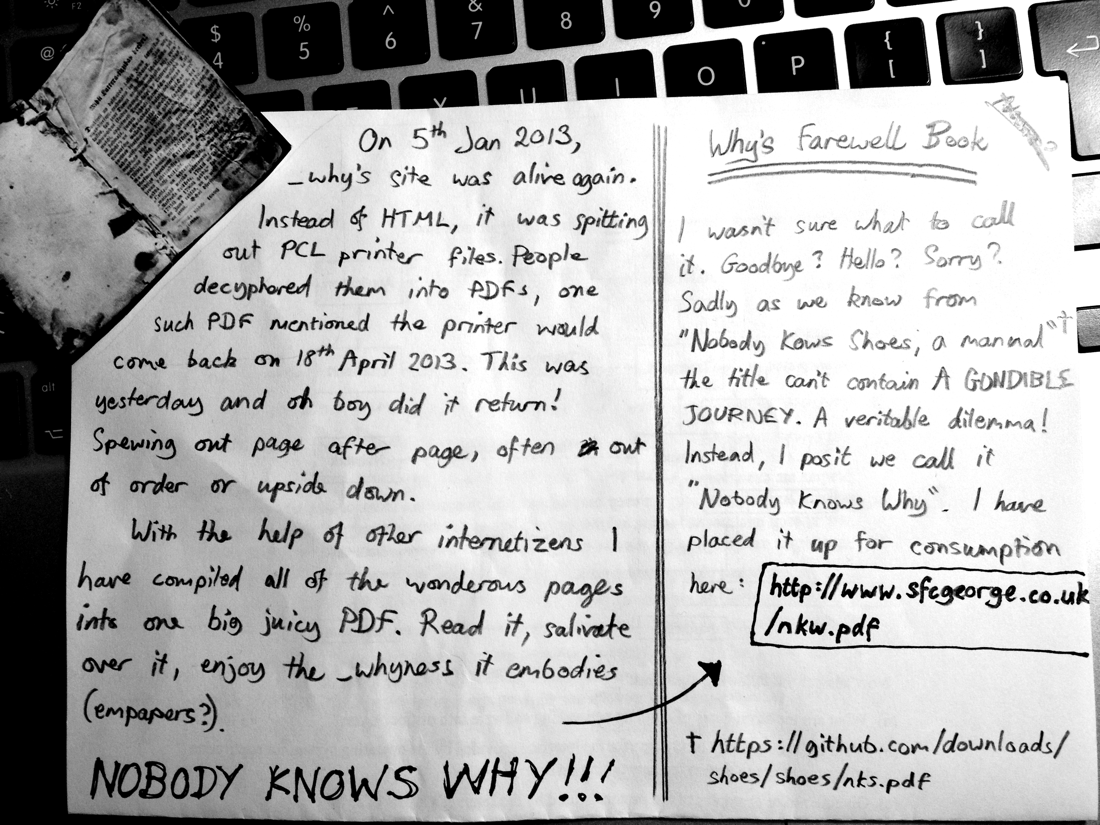 F2
@
$
4
%
5
^
6
&
7
8
9
U
I
O
P
{
[
}
]
alt
On 5th Jan 2013,
_why's site was alive again.
Instead of HTML, it was spitting
out PCL printer files. People
decyphored them into PDFs, one
such PDF mentioned the printer would
come back on 18th April 2013. This was
yesterday and oh boy did it return!
Spewing out page after page, often out
of order or upside down.
With the help of other internetizens I
have compiled all of the wonderous pages
into one big juicy PDF. Read it, salivate
over it, enjoy the _whyness it embodies
(empapers?).
NOBODY KNOWS WHY!!!
Why's Farewell Book
I wasn't sure what to call
it. Goodbye? Hello? Sorry?
Sadly as we know from
"Nobody Kows Shoes, a manual"†
the title can't contain A GONDIBLE
JOURNEY. A veritable dilemma!
Instead, I posit we call it
"Nobody Knows Why". I have
placed it up for consumption
here: http://www.sfcgeorge.co.uk
/nkw.pdf
† https://github.com/downloads/
shoes/shoes/nks.pdf